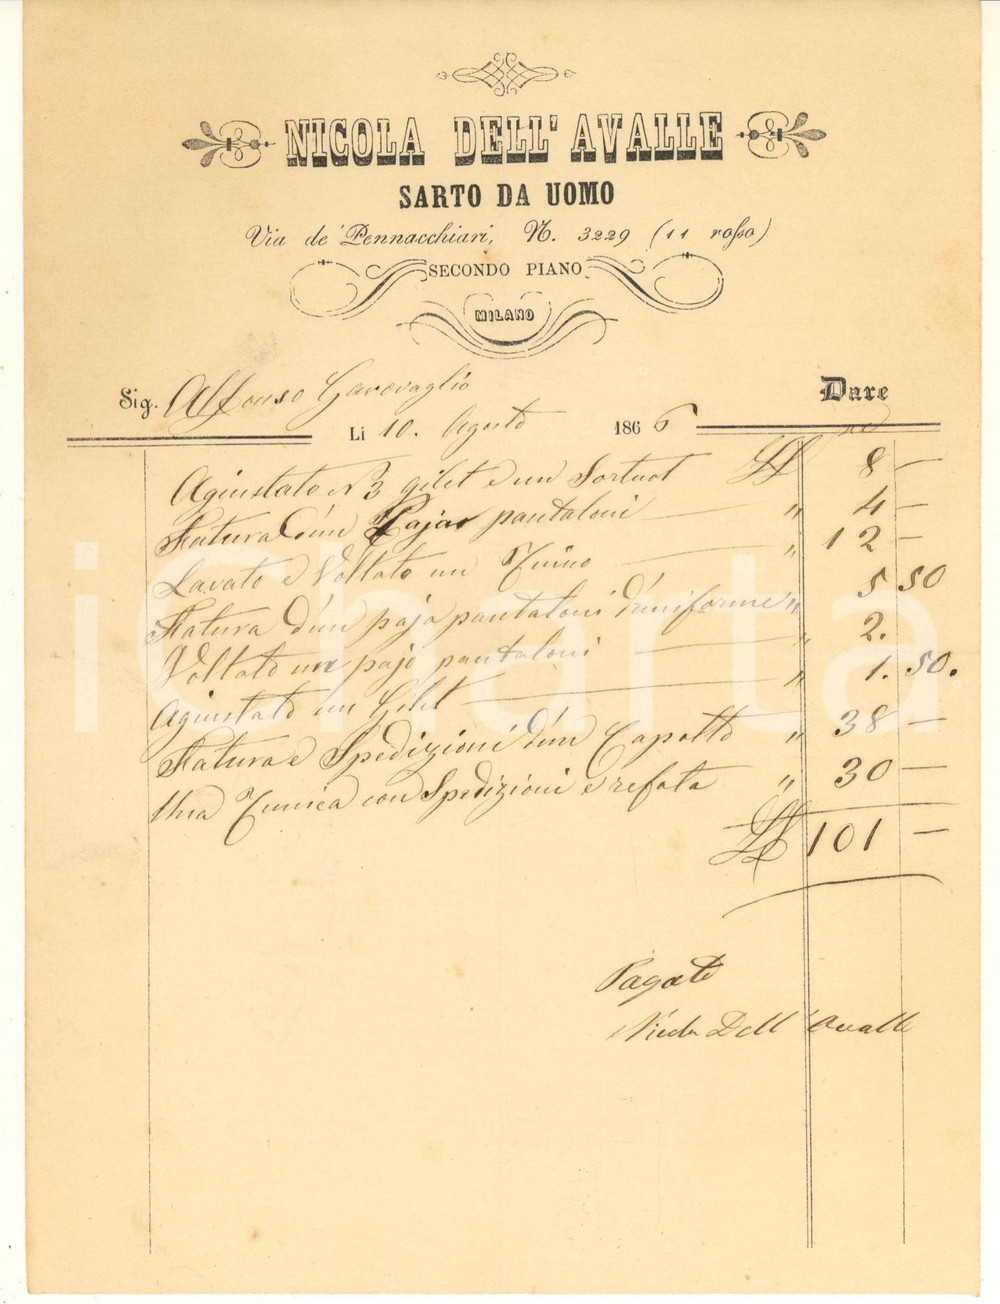 NICOLA DELL' AVALLE
SARTO DA UOMO
Via de' Pennacchiari, N. 3229 (11 rosso)
SECONDO PIANO
MILANO
Sig. Alfonso Garovaglio
Dare
Li 10. Agosto 1866
Agiustato N 3 gilet e un Sortuot 8 —
Fatura d'un Pajo pantaloni — " 4 —
Lavato e Voltato un — " 12 —
Fatura d'un pajo pantaloni d'uniforme " 5 50
Voltato un pajo pantaloni — " 2.
Agiustato un Gilet — " 1. 50.
Fatura e Spedizioni d'un Capotto " 38 —
Una Tunica con Spedizioni e refata " 30 —
101 —
Pagato
Nicola Dell' Avalle
iCharta